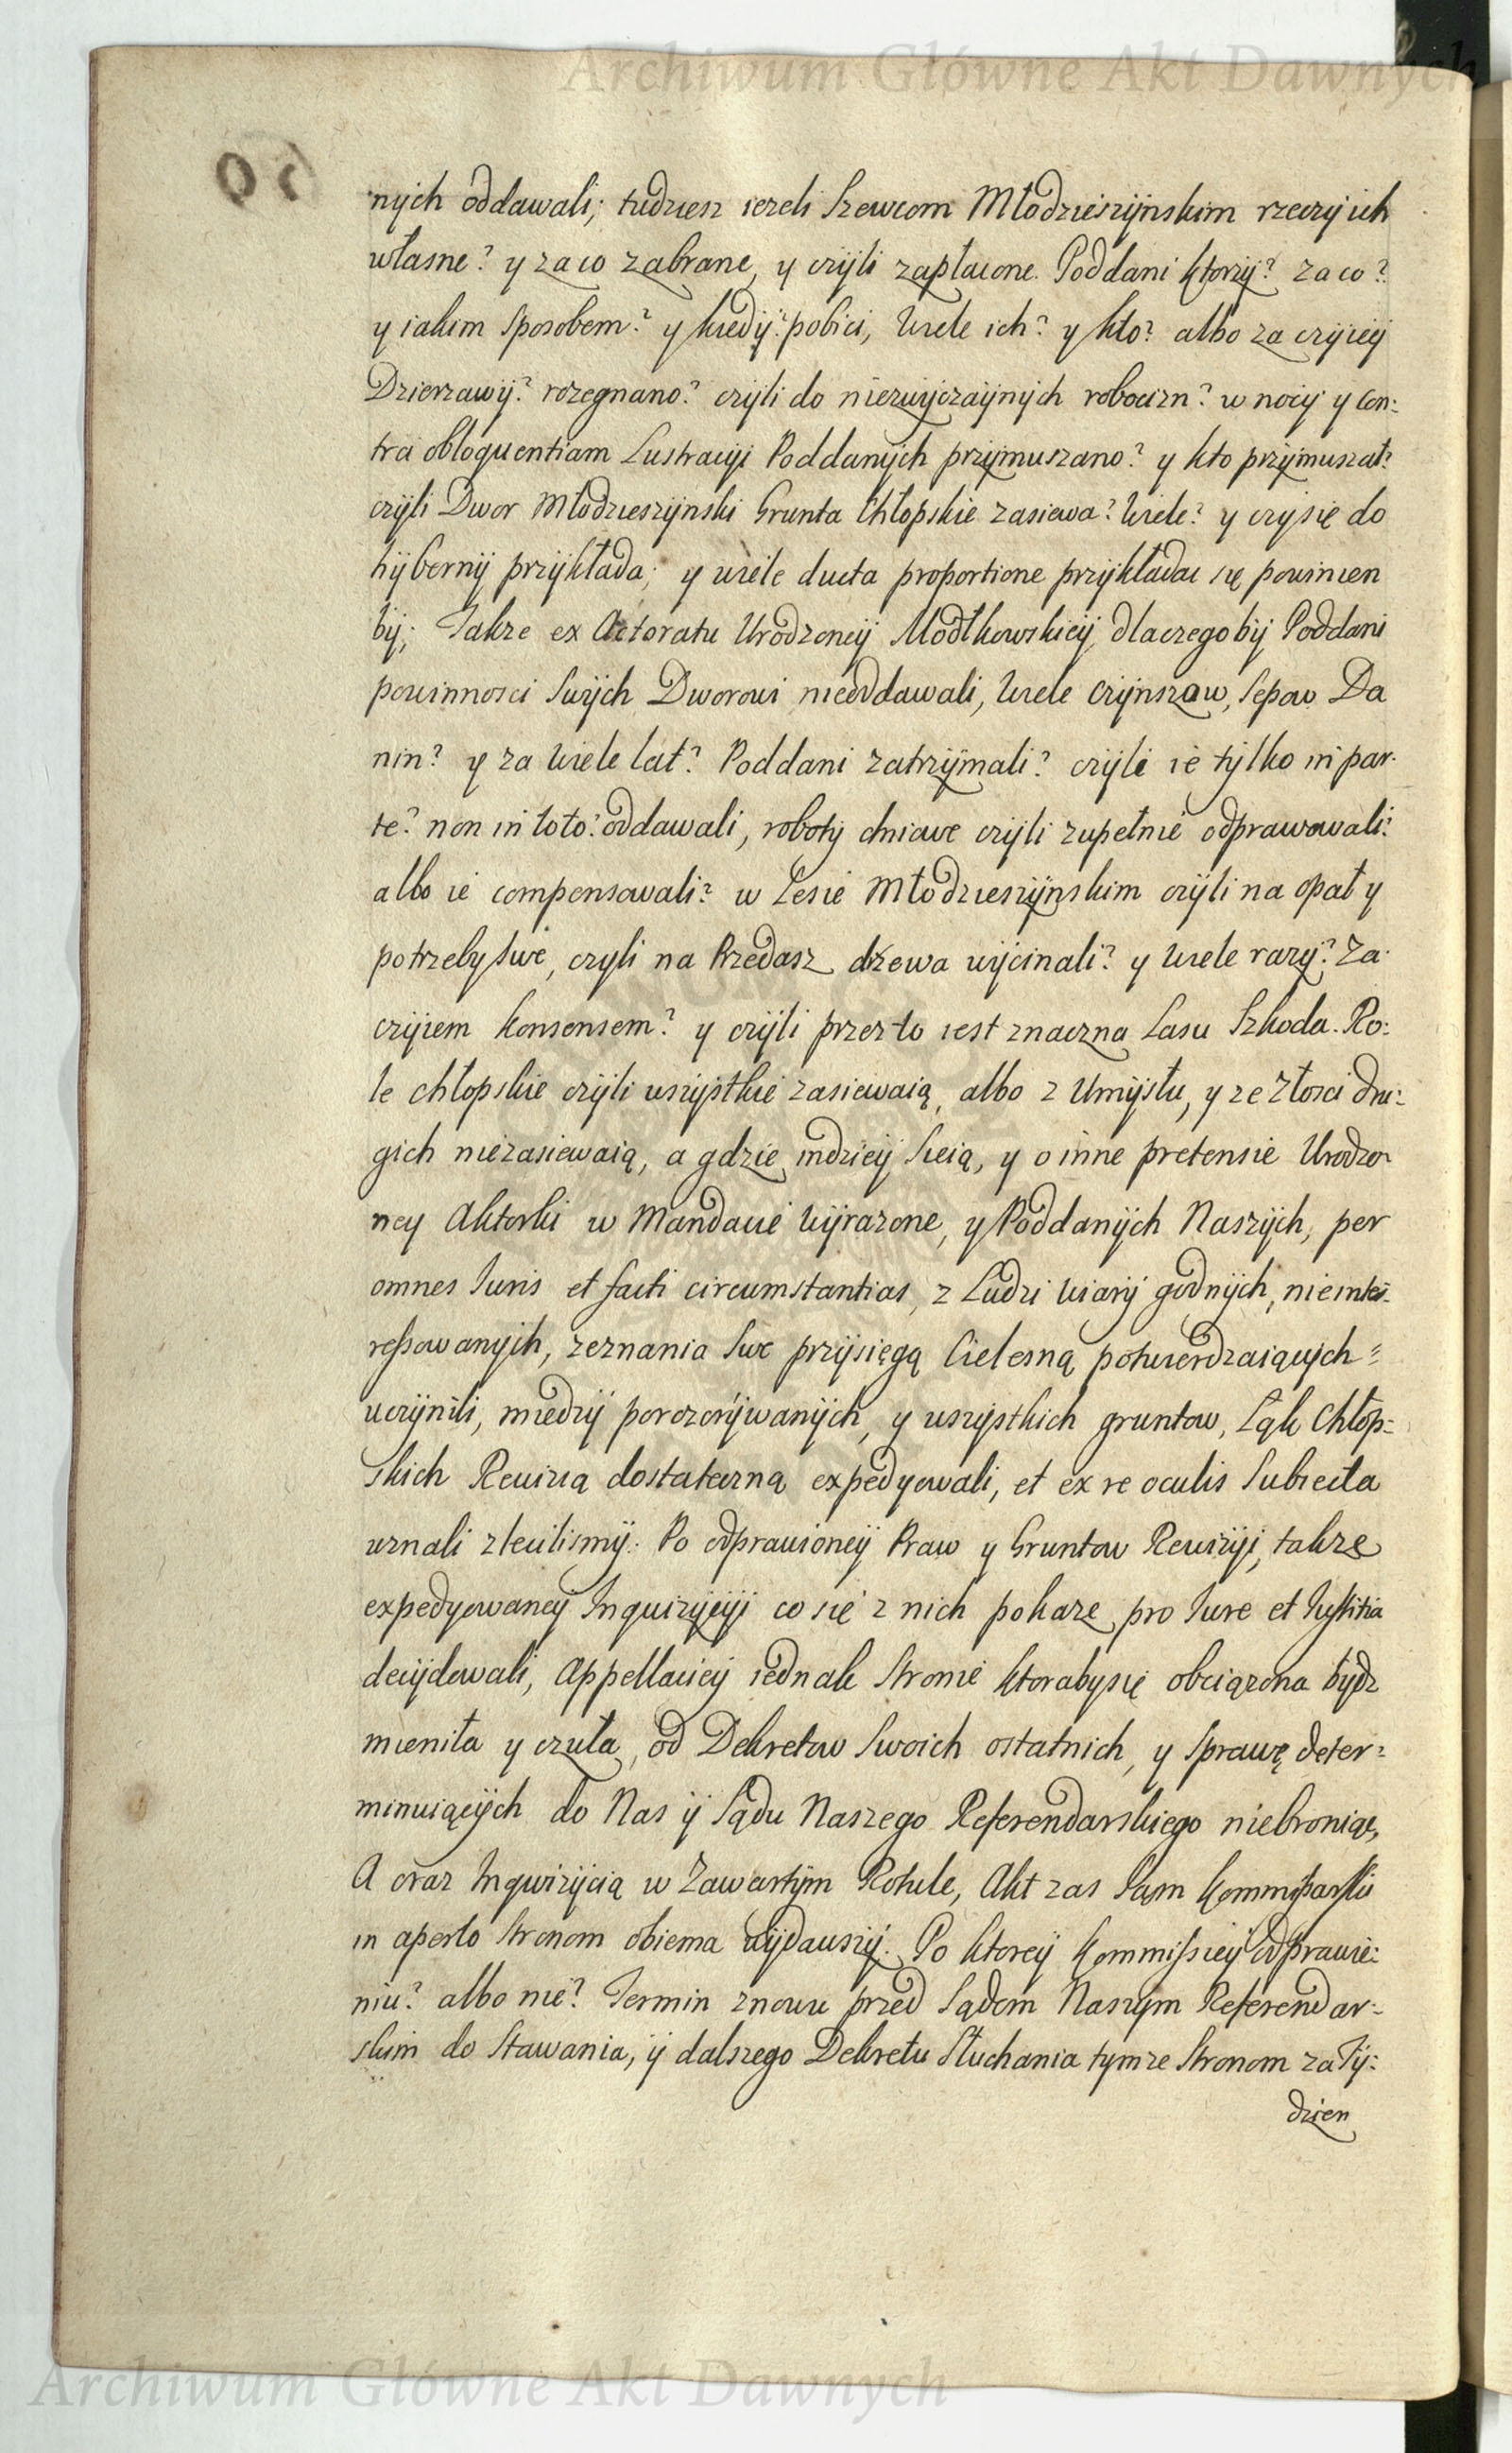 Archiwum Główne Akt Dawnych
nych oddawali; tudziesz iezeli Szewcom Młodzieszÿnskim rzeczÿ ich
własne? y za co zabrane, y czÿli zapłacone. Poddani ktorzÿ? za co?
y iakim sposobem? y kiedÿ? pobici, wiele ich? y kto? albo za czÿieÿ
Dzierzawÿ? rozegnano? czÿli do niezwÿczaÿnÿch robocizn? w nocÿ y con:
tra obloquentiam Lustracÿi Poddanÿch przÿmuszano? y kto przÿmuszał?
czÿli Dwor Młodzieszÿnski Grunta Chłopskie zasiewa? wiele? y czÿ się do
hÿbernÿ przÿkłada; y wiele ducta proportione przÿkładac się powinien
bÿ; Takze ex Actoratu Urodzoneÿ Modlkowskieÿ, dlaczego bÿ Poddani
powinnosci swÿch Dworowi nieoddawali, wiele czÿnszow, sepow Da
nin? y za wiele lat? Poddani zatrzÿmali? czÿli ie tÿlko in par.
te? non in toto? oddawali, robotÿ dniowe czÿli zupełnie odprawowali?
albo ie compensowali? w Lesie Młodzieszÿnskim czÿli na opał y
potrzeby swe, czyli na Przedasz drzewa wÿcinali? y wiele razÿ? Za
czÿiem konsensem? y czÿli przez to iest znaczna Lasu Szkoda. Ro:
le chłopskie czÿli wszÿstkie zasiewaią, albo z Umÿsłu, y ze złosci dru:
gich niezasiewaią, a gdzie indzieÿ sieią, y o inne pretensie Urodzo
ney Aktorki w Mandacie wÿrazone, y Poddanÿch Naszÿch, per
omnes Iuris et facti circumstantias, z Ludzi wiarÿ godnÿch, nieinte:
ressowanÿch, zeznania swe przÿsięgą Cielesną potwierdzaiącÿch
uczÿnili, miedzÿ porozorÿwanÿch, y wszÿstkich gruntow, Ląk Chłop:
skich Rewizią dostateczną expedyowali, et ex re oculis Subiecta
uznali zlecilismÿ. Po odprawioneÿ Praw y Gruntow Rewizÿi, takze
expedyowaneÿ Inquizÿcÿi co się z nich pokaze pro Iure et Iustitia
decÿdowali, Appellacieÿ iednak stronie ktorabysię obciązona bÿdz
mieniła y czuła, od Dekretow swoich ostatnich, y sprawę deter:
minuiącÿch do Nas ÿ Sądu Naszego Referendarskiego niebroniąc,
A oraz Inqwizÿcią w Zawartÿm Rotule, Akt zas sam kommissarski
in aperto stronom obiema wÿdawszÿ. Po ktoreÿ kommissieÿ odprawie:
niu? albo nie? Termin znowu przed Sądem Naszym Referendar:
skim do Stawania, ÿ dalszego Dekretu słuchania tymze stronom za Tÿ:
dzien
Archiwum Główne Akt Dawnych